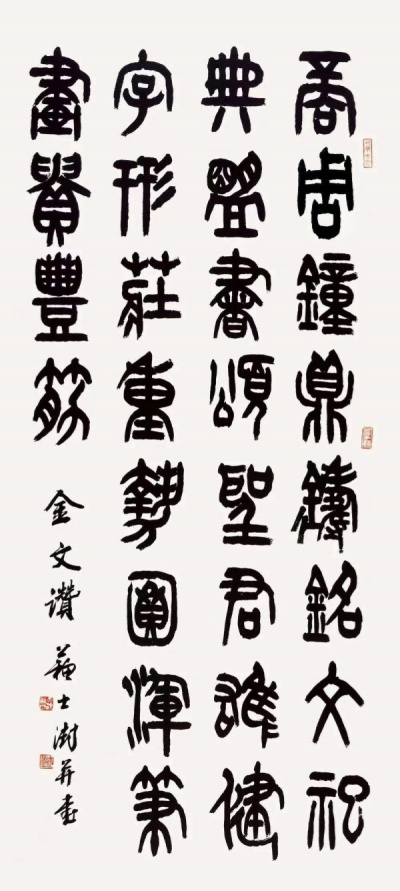 商周鐘鼎鑄銘文祀
典盟書頌聖君雄健
字形莊重勢圓渾筆
畫貫豐筋
金文讚 蘇士澍并書